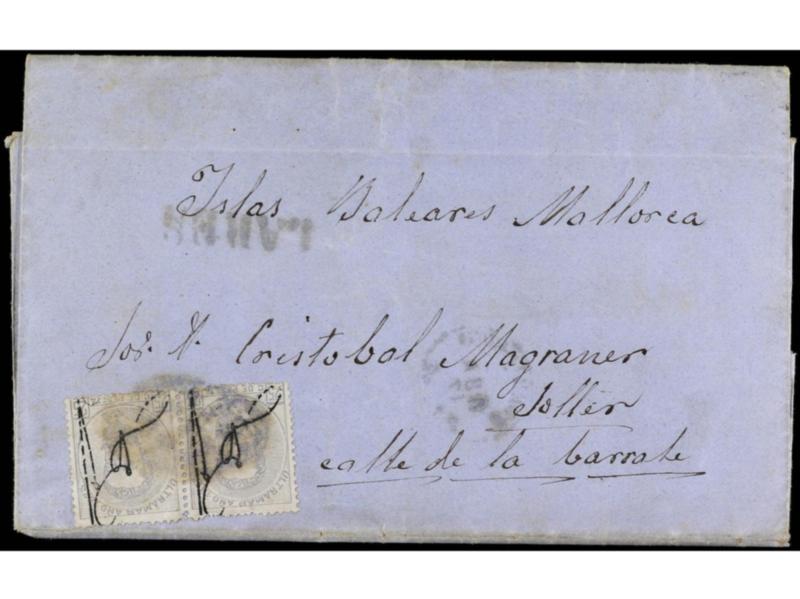 Islas Baleares Mallorca
Sor. D. Cristobal Magraner
Soller
calle de la barrate
ULTRAMAR AÑO
ULTRAMAR AÑO